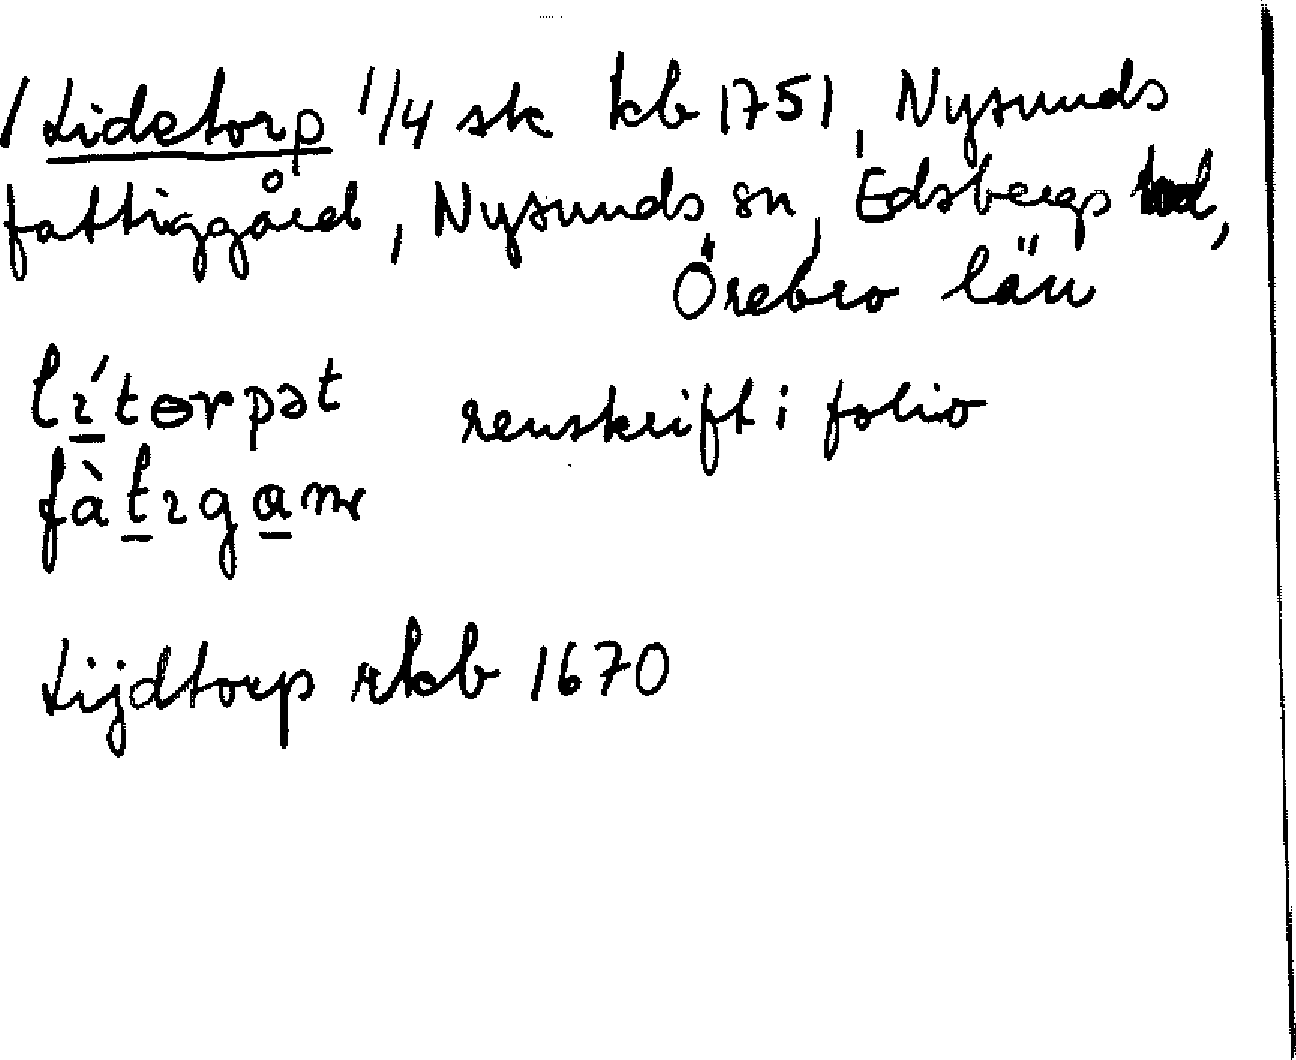 / Lidetorp 1/4 sk kb 1751, Nysunds
fattiggård, Nysunds sn, Edsbergs hd,
Örebro län
lɪ́tɵrpət renskrift i folio
fàtɪgaɳɐ
Lijdtorp rkb 1670